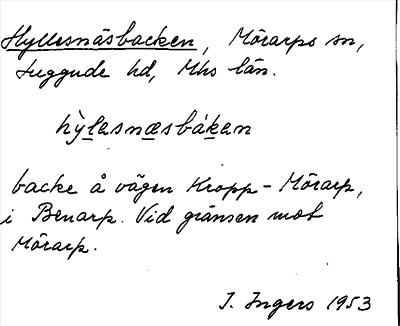 Hyllesnäsbacken, Mörarps sn,
Luggude hd, Mhs län.
hỳlasnæsbákan
backe å vägen Kropp - Mörarp,
i Benarp. Vid gränsen mot
Mörarp.
I. Ingers 1953